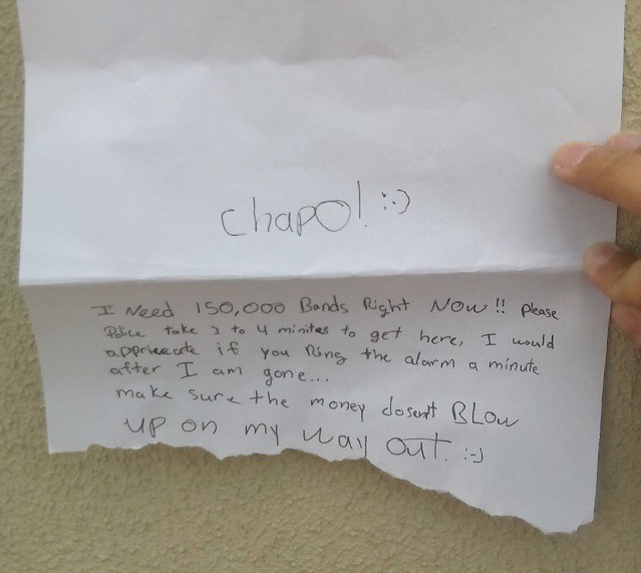 Chapo! :-)
I Need 150,000 Bands Right Now!! Please
Police take 3 to 4 minites to get here, I would
apprieceate if you Ring the alarm a minute
after I am gone...
make sure the money dosent BLow
up on my way out. :-)